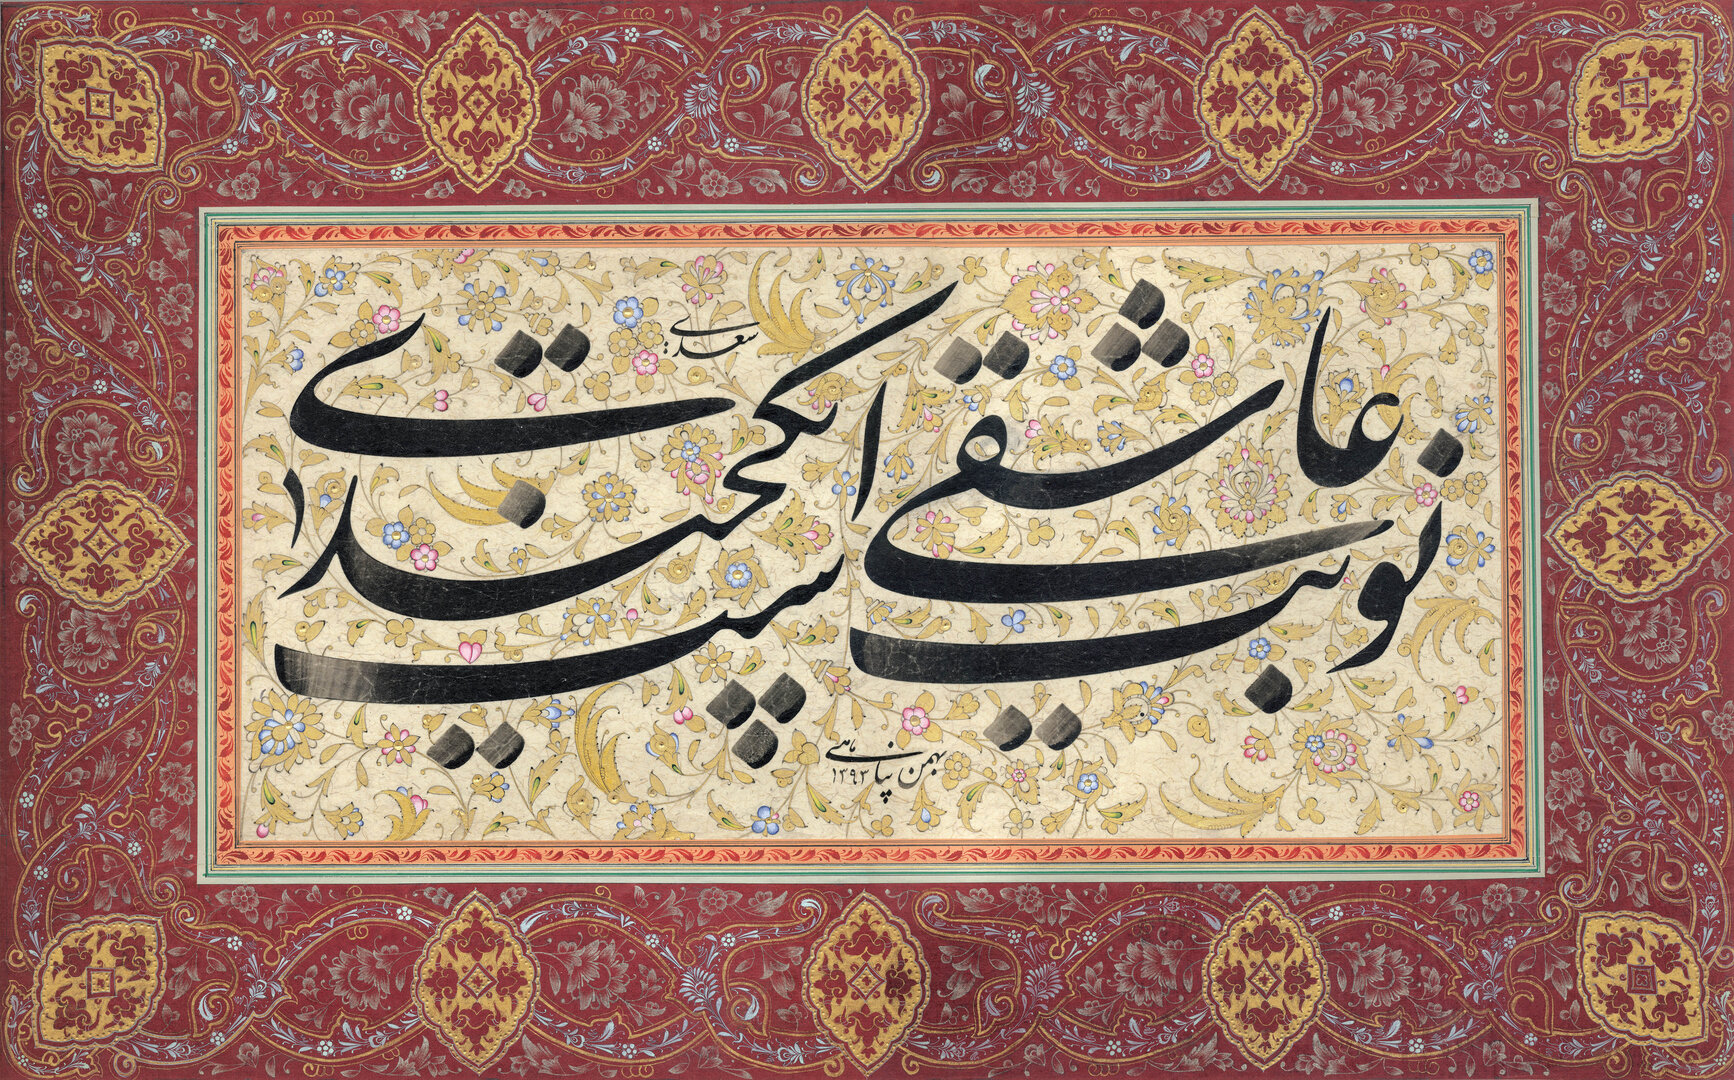 نوبت عاشقی است یکچندی
سعدی
بهمن پناهی
۱۳۹۳